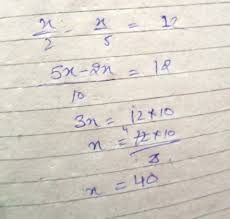 x/2 - x/5 = 12
5x-2x/10 = 12
3x = 12×10
x = 4 12×10/3
x = 40